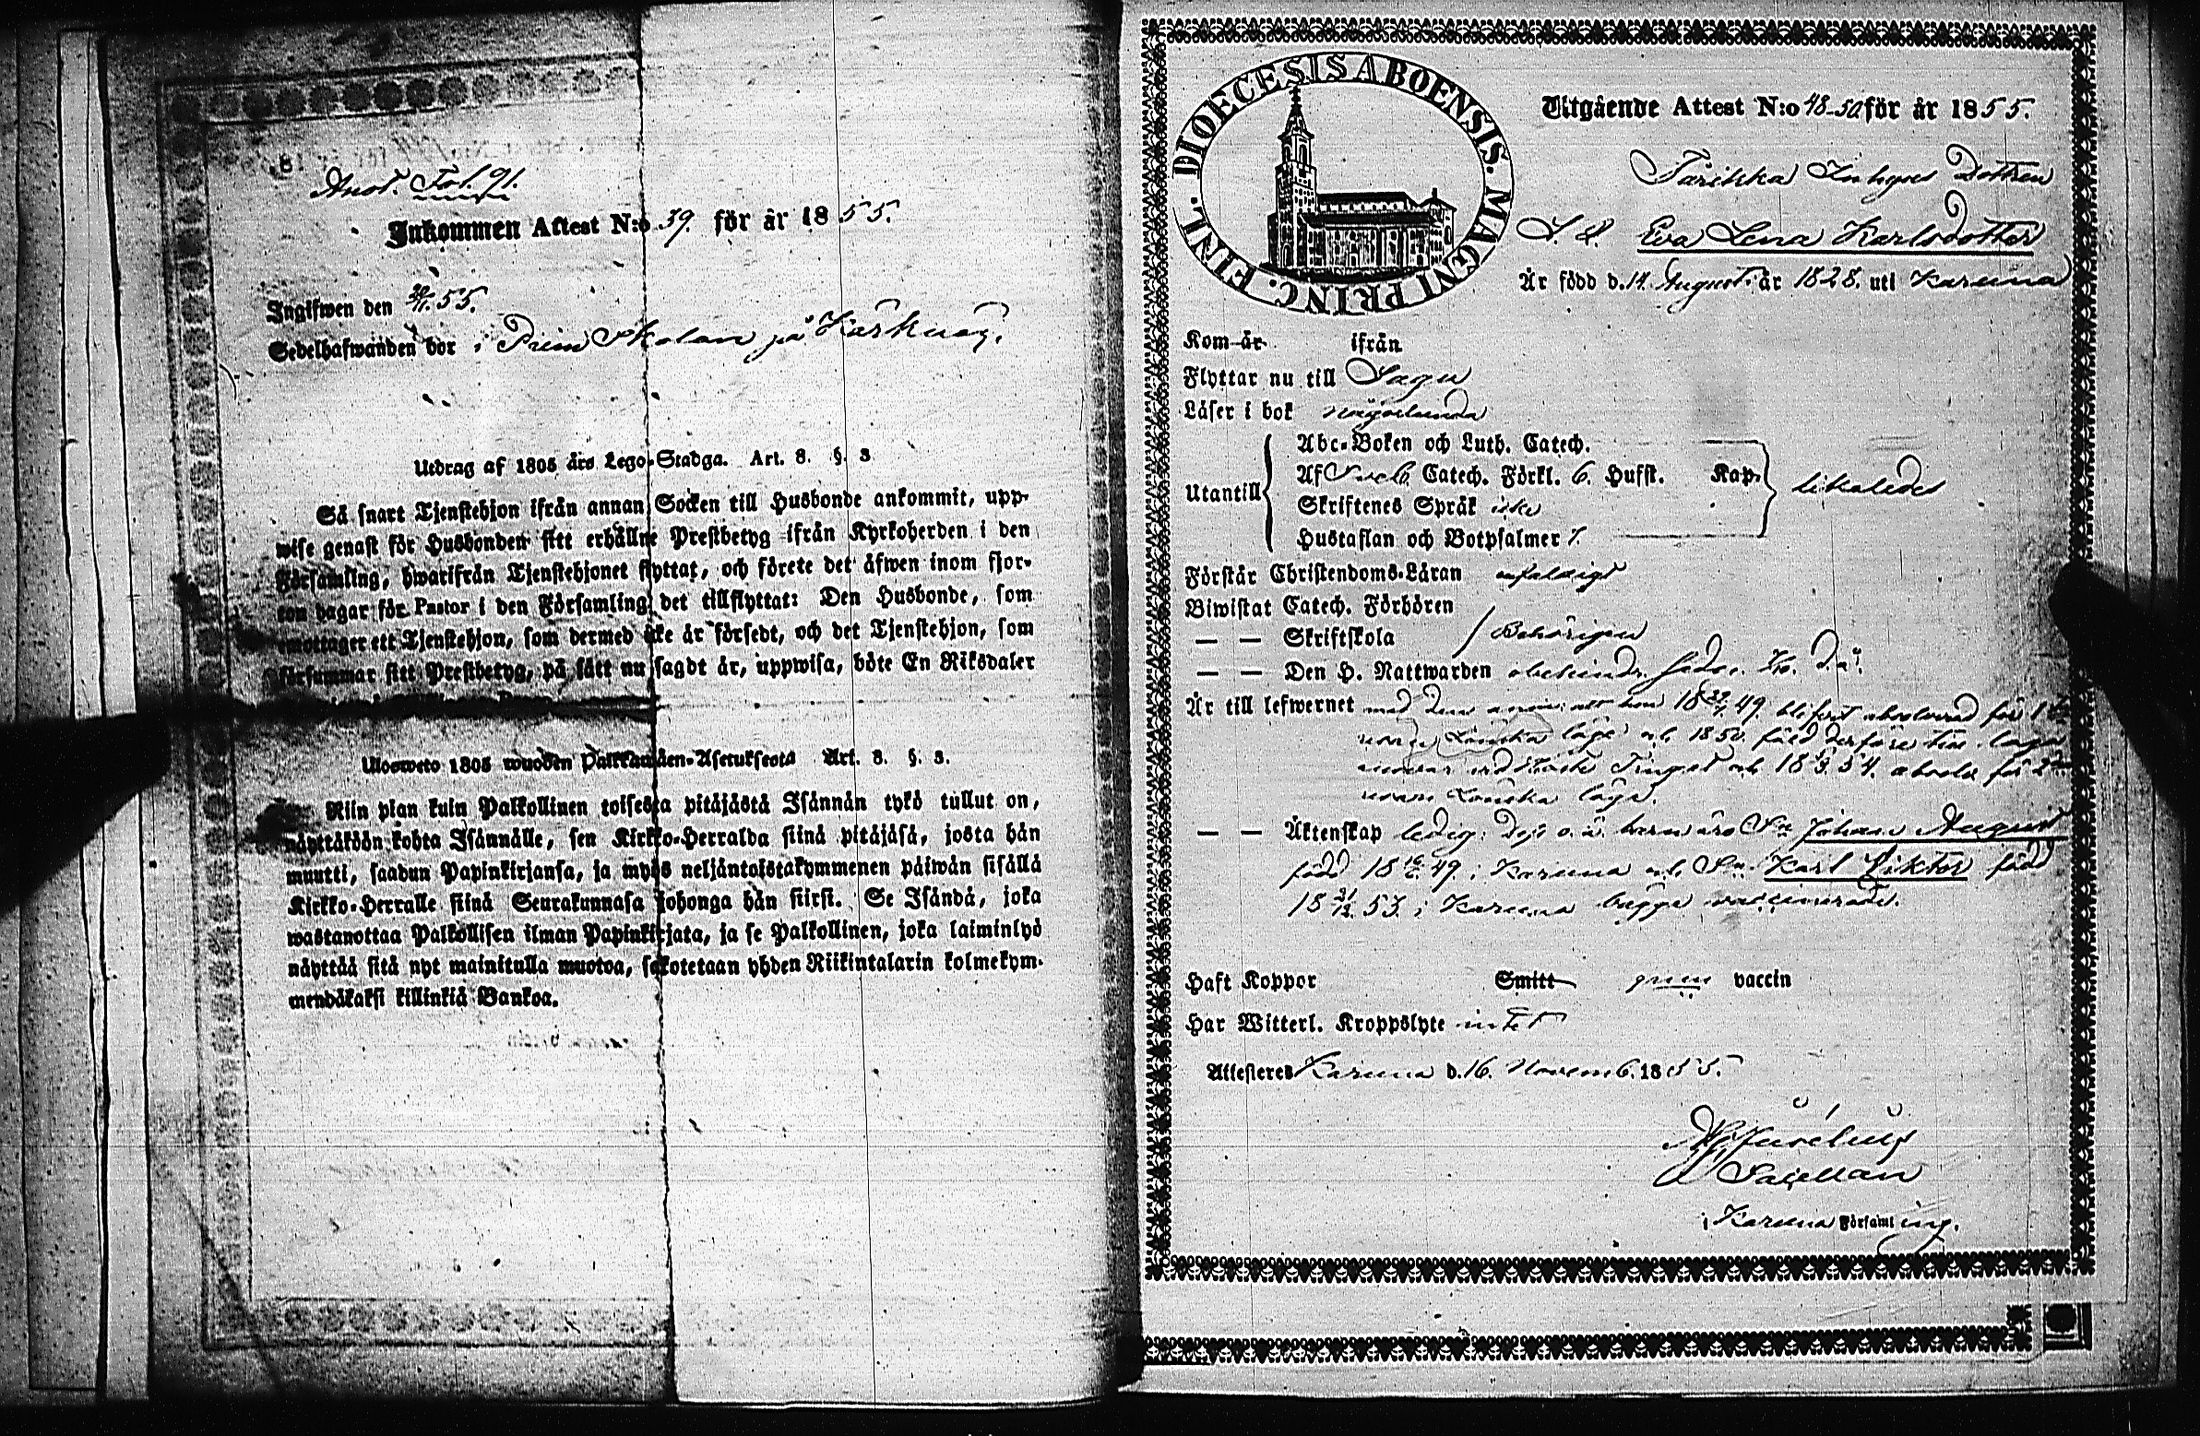 8.
Anot. Fol. 91.
Inkommen Attest N:o 39. för år 1855.
Ingifwen den 55.
Sedelhafwanden bor i Prim Skolan på Karkuag.
Utdrag af 1805 års Lego-Stadga. Art. 8. §. 3
Så snart Tjenstehjon ifrån annan Socken till Husbonde ankommit, upp-
wise genast för Husbonden sitt erhållne Prestbetyg ifrån Kyrkoherden i den
Församling, hwarifrån Tjenstehjonet flyttat, och förete det äfwen inom fjor-
ton dagar för Pastor i den Församling det tillflyttat: Den Husbonde, som
emottager ett Tjenstehjon, som dermed icke är försedt, och det Tjenstehjon, som
försummar sitt Prestbetyg, på sätt nu sagdt är, uppwisa, böte En Riksdaler
Ulosweto 1805 wuoden Palkkawäen-Asetuksesta Art. 8. §. 3.
Niin pian kuin Palkollinen toisesta pitäjästä Isännän tykö tullut on,
näyttäköön kohta Isännälle, sen Kirkko-Herralda siinä pitäjäsä, josta hän
muutti, saadun Papinkirjansa, ja myös neljäntoistakymmenen päiwän sisällä
Kirkko-Herralle siinä Seurakunnasa johonga hän siirsi. Se Isändä, joka
wastanottaa Palkollisen ilman Papinkirjata, ja se Palkollinen, joka laiminlyö
näyttää sitä nyt mainitulla muotoa, sakotetaan yhden Riikintalarin kolmekym-
mendäkaksi killinkiä Bankoa.
DIOECESIS ABOENSIS. MAGNI PRINC. FINL.
Utgående Attest N:o 48-50 för år 1855.
Tarikka Inhyses Dottren
Eva Lena Karlsdotter
Är född d. 14 August. år 1828. uti Karuna
Kom år ifrån
Flyttar nu till Sagu
Läser i bok någorlunda
Utantill
Abc-Boken och Luth. Catech.
Af Sveb. Catech. Förkl. 6. Hufst. Kap.
likaledes
Skriftenes Språk icke
Hustaflan och Botpsalmer 7.
Förstår Christendoms-Läran enfaldigt
Biwistat Catech. Förhören
— — Skriftskola Behörigen
— — Den H. Nattwarden obehindr.
Är till lefwernet med den anm: att hon 18 49. blifvit absolverad för 1
Lönska läge o. 1850 derföre
Tinget och 18 54. absolv. för 2
Lönska läge.
— — Äktenskap ledig. Dess o. ä. barn äro Sn Johan August
född 18 49 i Karuna och Sn Karl Viktor född
18 53. i Karuna begge vaccinerade.
Haft Koppor Smitt genom vaccin
Har Witterl. Kroppslyte intet
Attesteres Karuna d. 16. Novemb. 1855.
Sacellan
i Karuna Församling.